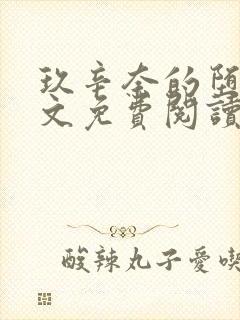 玖辛奈的堕
文免費閱讀
酸辣丸子愛喫